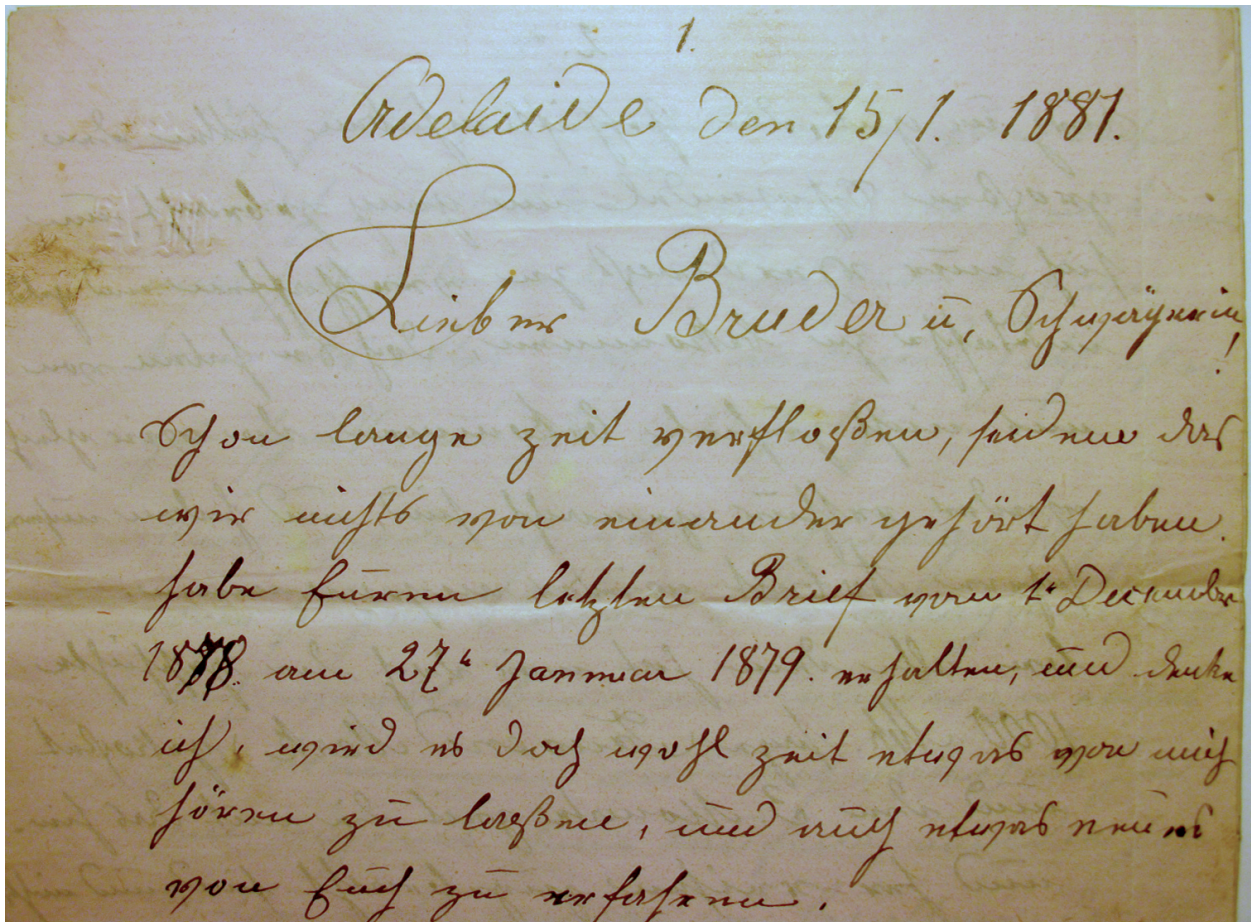 1.
Adelaide den 15/1. 1881.
Lieber Bruder u, Schwägerin!
Schon lange zeit verfloßen, seidem das
wir nichts von einander gehört haben.
habe Euren letzten Brief vom 1tn December
1878. am 27tn Januar 1879. erhalten, und denke
ich, wird es doch wohl zeit etwas von mich
hören zu laßen, und auch etwas neues
von Euch zu erfahren.